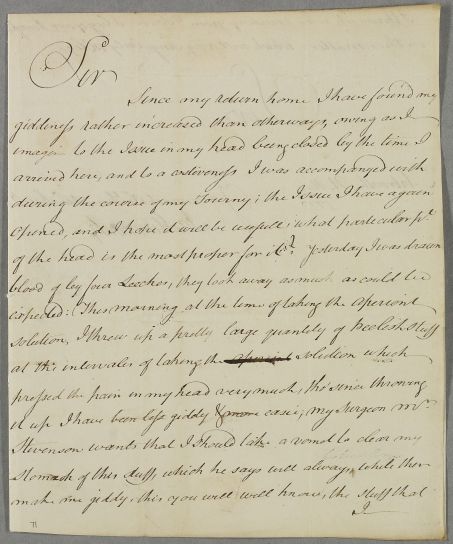 Sir
Since my return home I have found my
giddiness rather increased than otherways, owing as I
imagin to the Issue in my head being closed by the time I
arrived here, and to a costiveness I was accompanyed with
during the course of my Journy; the Issue I have again
opened, and I hope it will be usefull; what particular pt
of the head is the most proper for it? Yesterday I was drawn
blood of by four Leeches, they took away as much as could be
expected: This morning at the time of taking the aperient
solution, I threw up a pretty large quantity of stuff
at the intervales of taking the solution which
pressed the pain in my head very much, tho' since throwing
it up I have been less giddy & more easie; my Surgeon Mr
Stevenson wants that I should take a vomet to clear my
stomach of this stuff, which he says will always, while ther
make me giddy, this you will well know, the stuff that
I
71